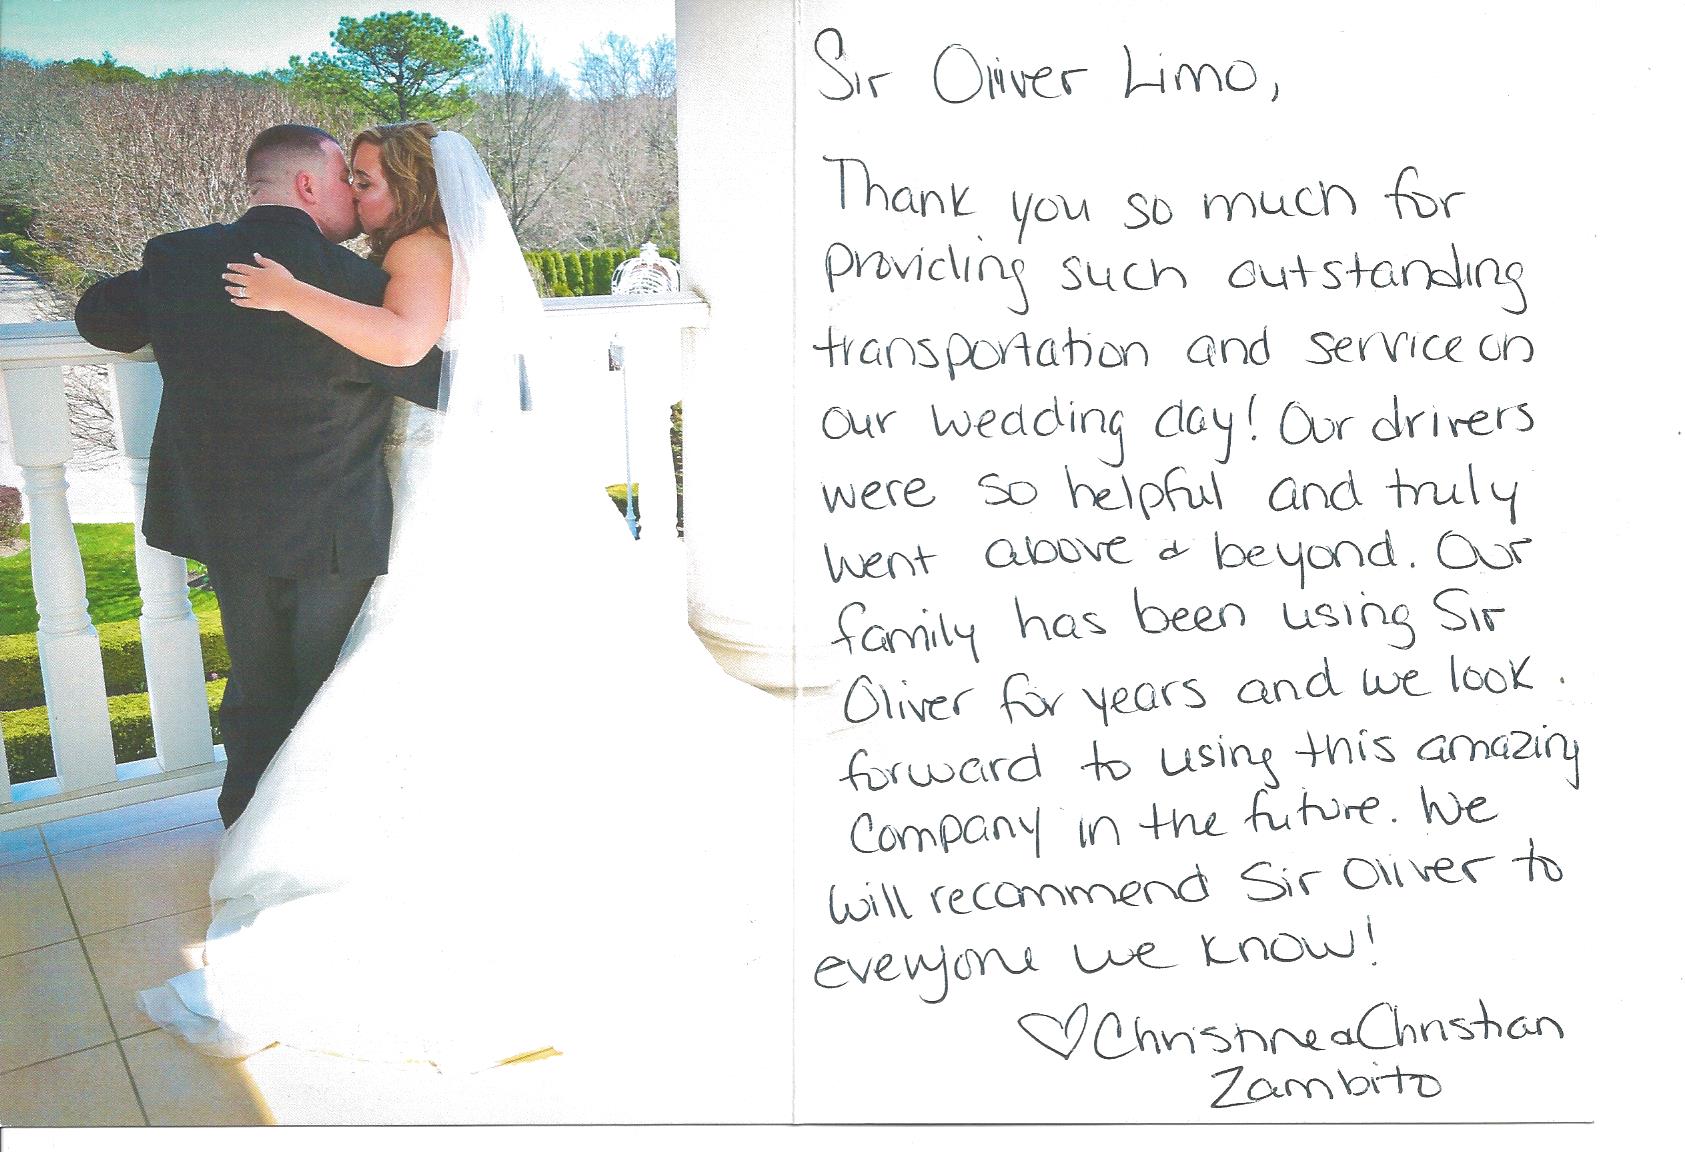 Sir Oliver Limo,
Thank you so much for
providing such outstanding
transportation and service on
our wedding day! Our drivers
were so helpful and truly
went above & beyond. Our
family has been using Sir
Oliver for years and we look
forward to using this amazing
company in the future. We
will recommend Sir Oliver to
everyone we know!
♡Christine & Christian
Zambito